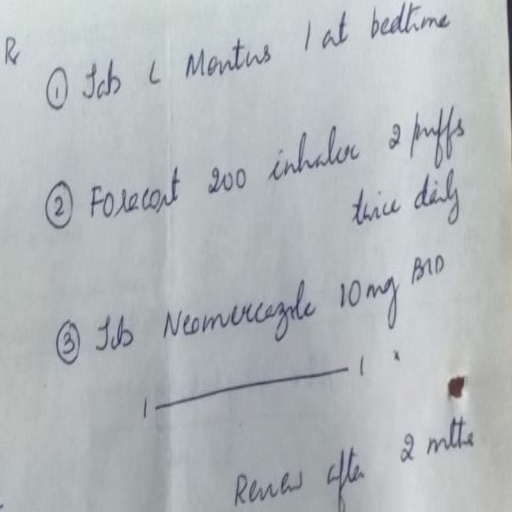 Rx
① Tab L Montus 1 at bedtime
② Foracort 200 inhaler 2 puffs
twice daily
③ Tab Neomercazole 10 mg BID
1 ——— 1 x
Renew after 2 mths